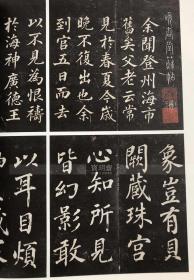 余聞登州海市
舊矣父老云常
見於春夏今歲
晚不復出也余
到官五日而去
以不見為恨禱
於海神廣德王
象豈有貝
闕藏珠宮
心知所見
皆幻影敢
以耳目煩